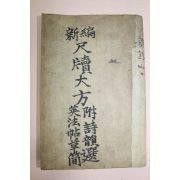 新編
尺牘大方附詩韻選
英法帖草简